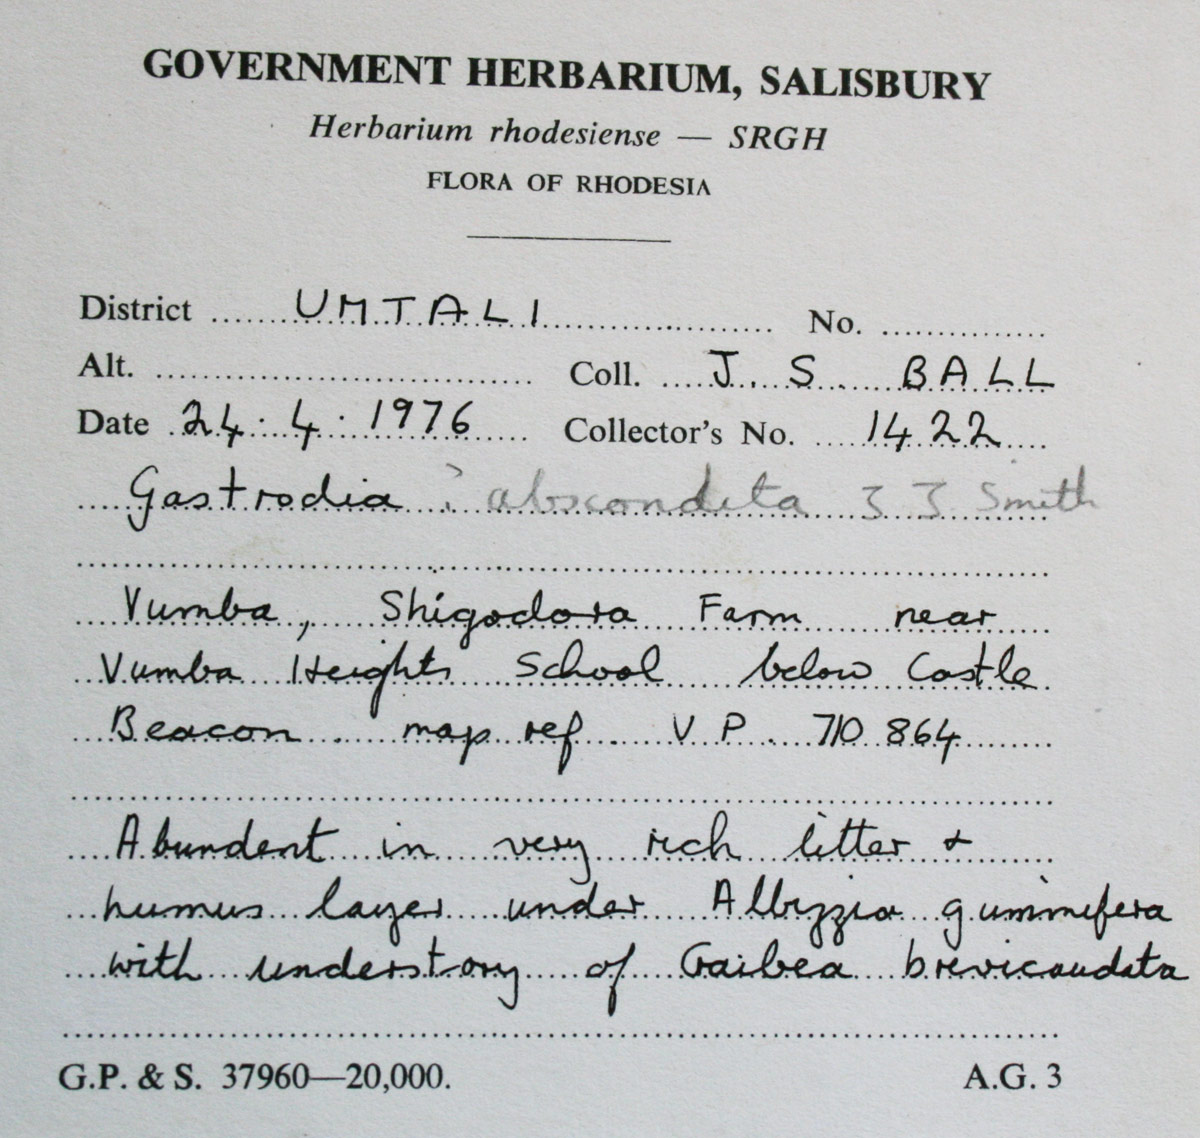 GOVERNMENT HERBARIUM, SALISBURY
Herbarium rhodesiense — SRGH
FLORA OF RHODESIA
District UMTALI No.
Alt. Coll. J. S. BALL
Date 24.4.1976 Collector's No. 1422
Gastrodia ? abscondita J J Smith
Vumba, Shigodora Farm near
Vumba Heights School below Castle
Beacon. map ref. V P. 710 864
Abundent in very rich litter +
humus layer under Albizzia gummifera
with understory of Craibea brevicaudata
G.P. & S. 37960—20,000. A.G. 3